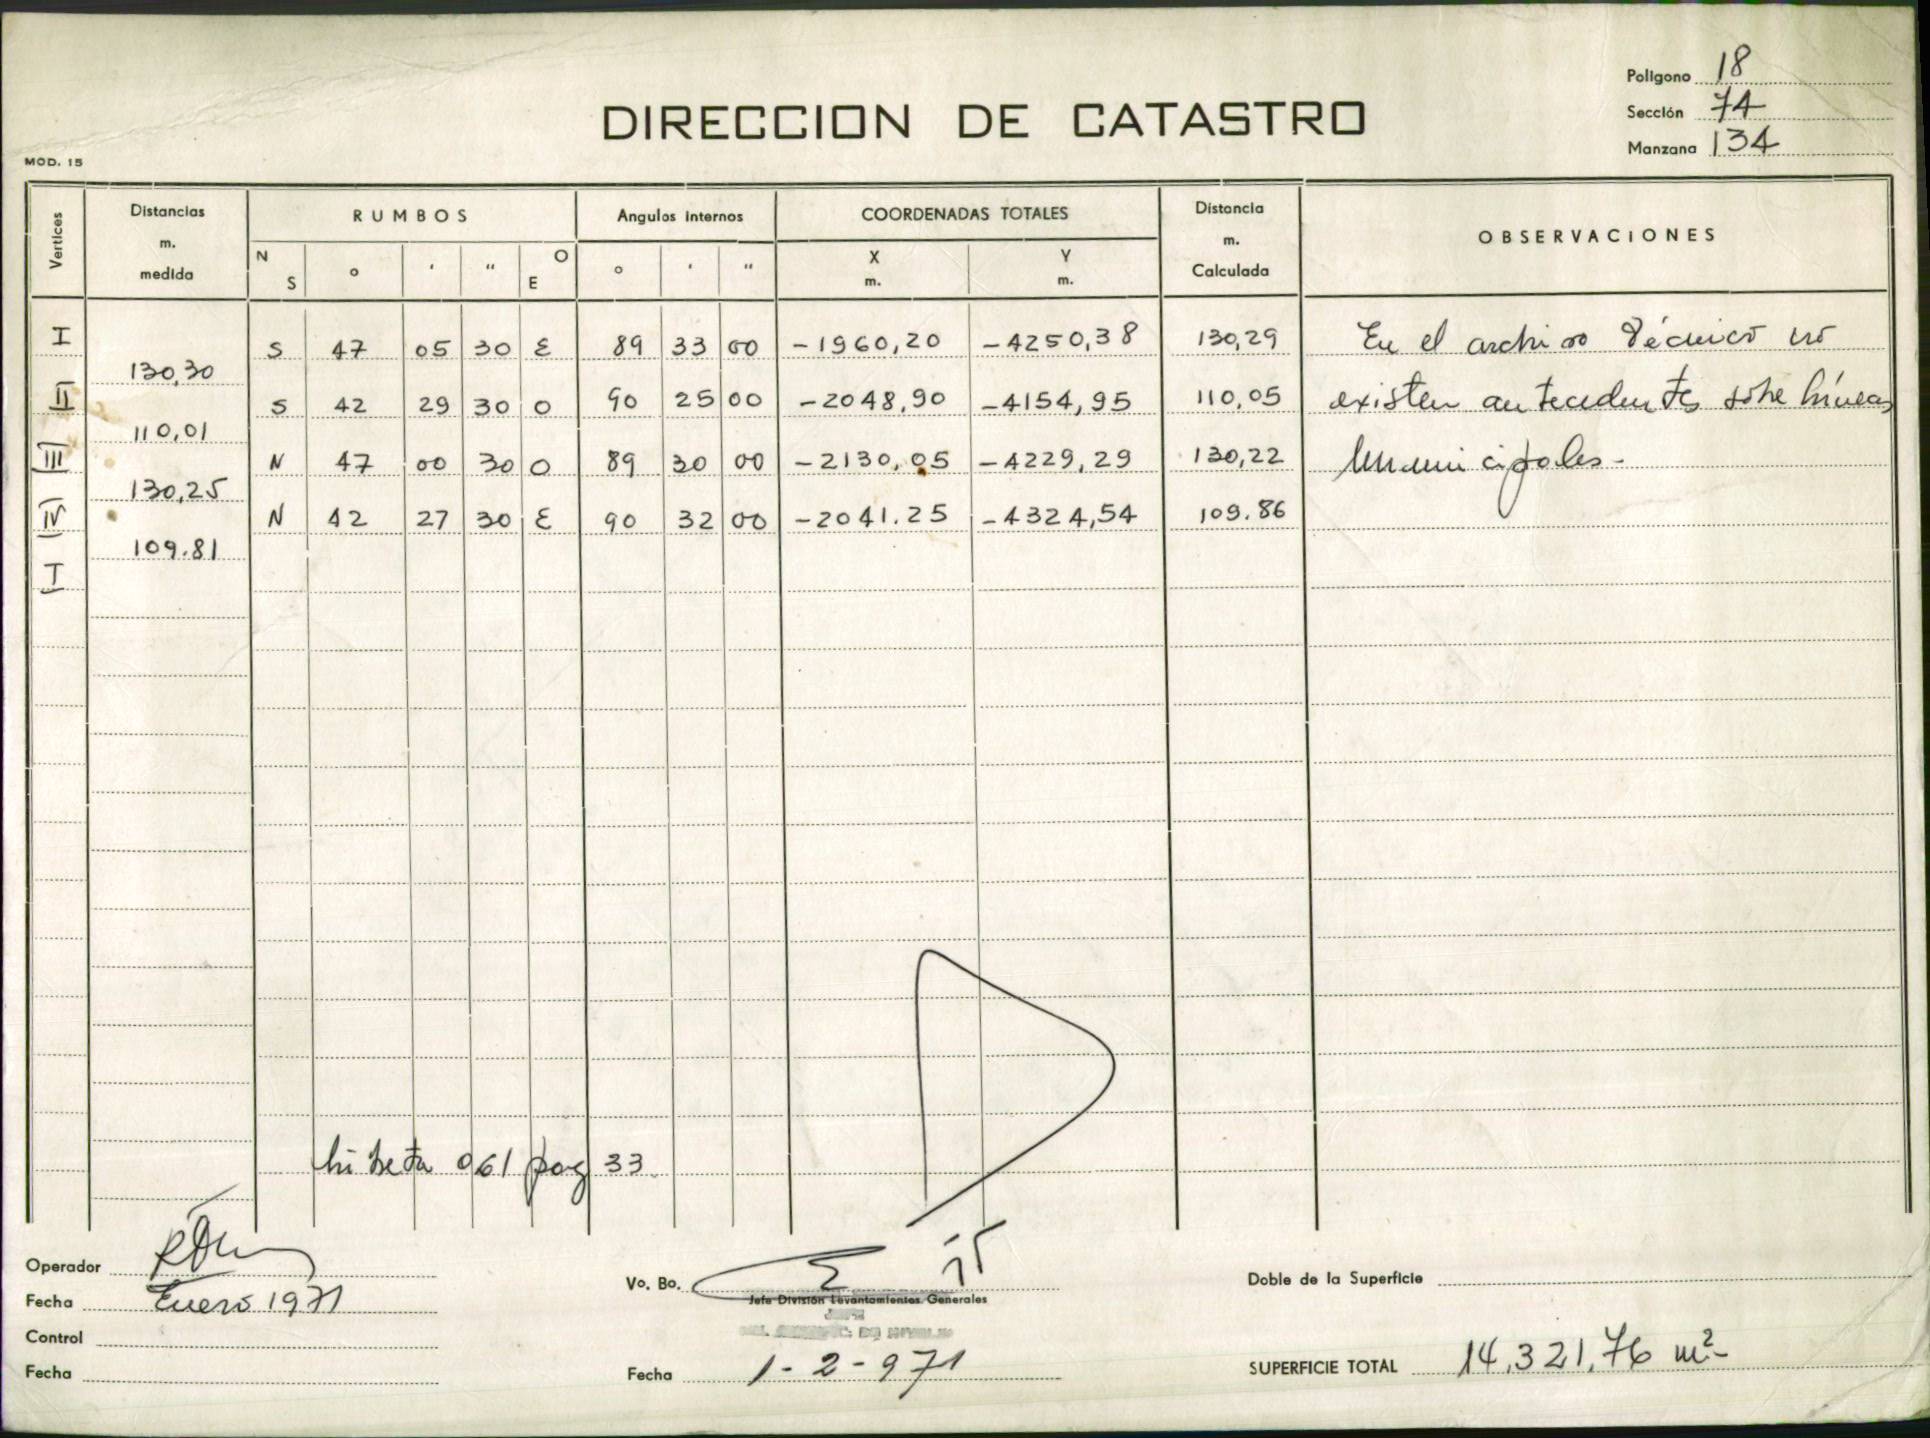 Poligono 18
DIRECCION DE CATASTRO
Sección 74
Manzana 134
MOD. 15
Vertices Distancias m. medida RUMBOS Angulos Internos COORDENADAS TOTALES Distancia m. Calculada OBSERVACIONES
N S ° ' " O E ° ' " X m. Y m.
I S 47 05 30 E 89 33 00 -1960,20 -4250,38 130,29 En el archivo Técnico no
130,30
II S 42 29 30 O 90 25 00 -2048,90 -4154,95 110,05 existen antecedentes sobre líneas
110,01
III N 47 00 30 O 89 30 00 -2130,05 -4229,29 130,22 Municipales-
130,25
IV N 42 27 30 E 90 32 00 -2041.25 -4324,54 109.86
109.81
I
libreta 061 pag 33
Operador
Vo. Bo.
Doble de la Superficie
Fecha Enero 1971
Jefe División Levantamientos Generales
Control
Fecha
Fecha 1-2-971
SUPERFICIE TOTAL 14.321,76 m²-